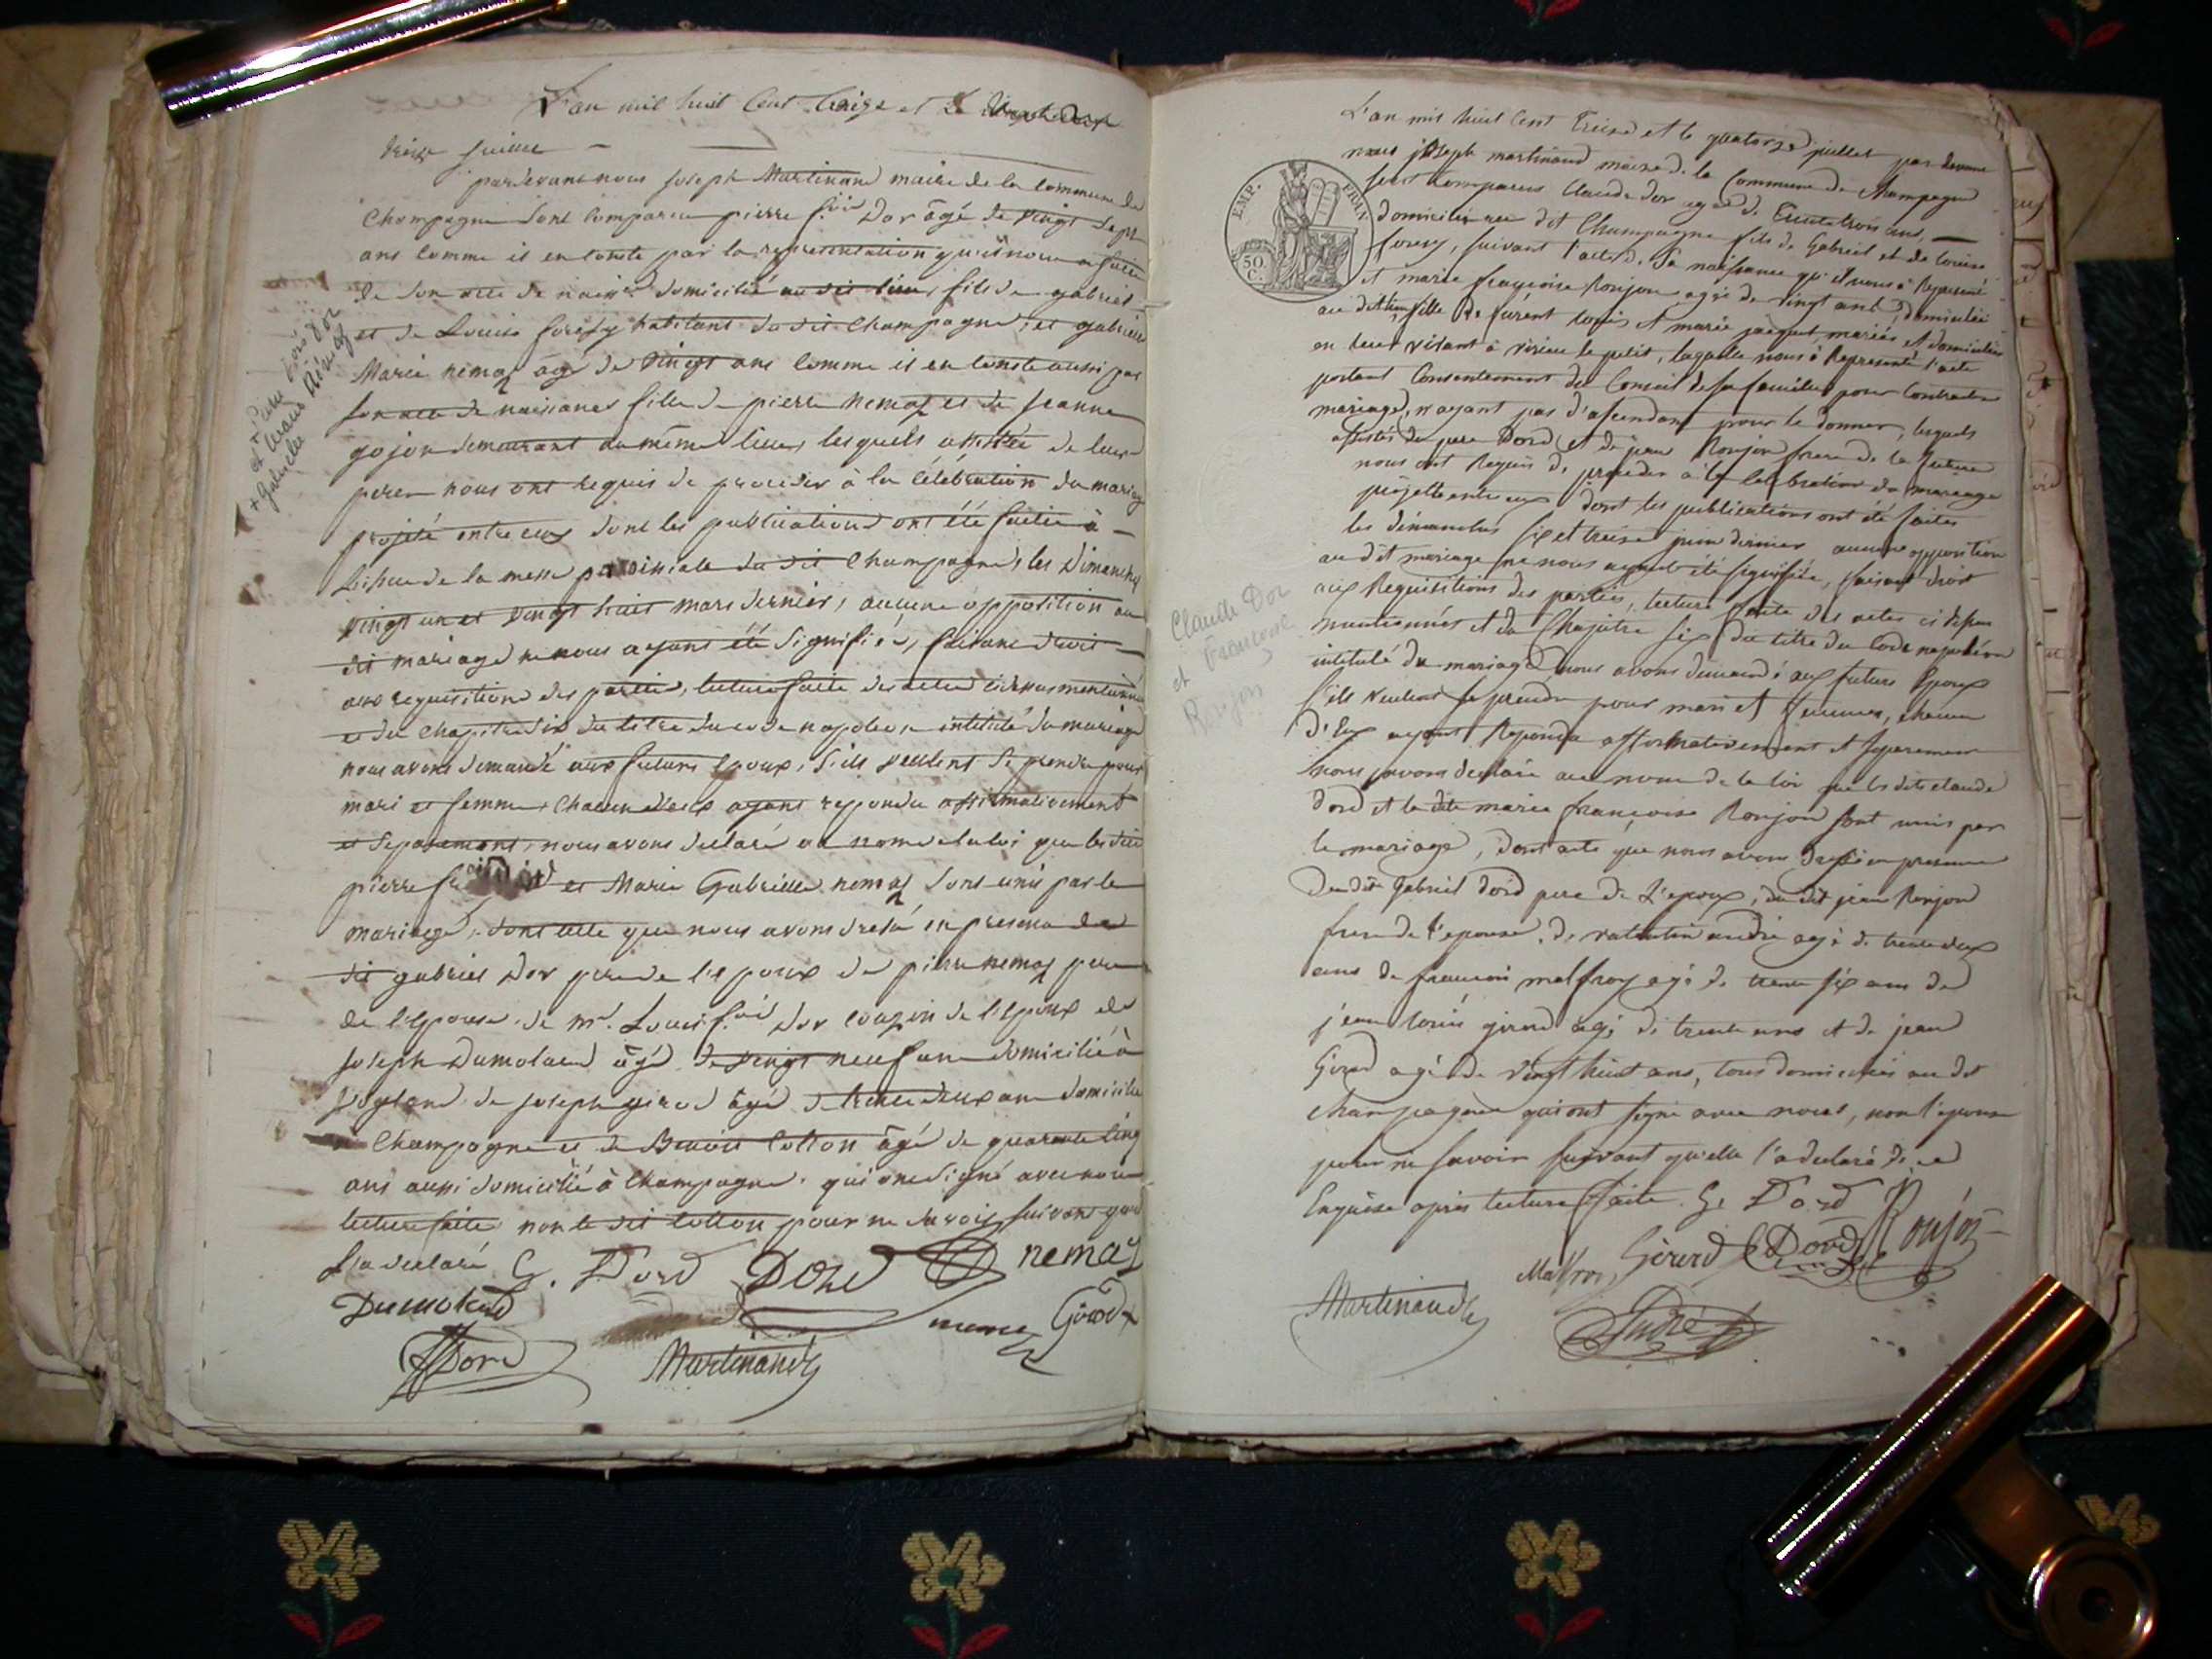 L'an mil huit Cent treize et le
treize juillet
pardevant nous joseph Martinand maire de la Commune de
Champagne sont comparu pierre f.ois Dor âgé de vingt sept
ans comme il en conste par la representation qu'il nous a faite
de son acte de naiss.ce domicilié au dit lieu, fils de gabriel
et de Louise forefy habitant du dit Champagne, et gabrielle
Marie nemoz agé de vingt ans comme il en conste aussi par
son acte de naissance fille de pierre nemoz et de Jeanne
gojon demeurant au même lieu, lesquels assistée de leur
peres nous ont requis de proceder à la célébration du mariage
projeté entre eux dont les publications ont été faites à
l'issue de la messe paroissiale du dit Champagne, les Dimanches
vingt un et vingt huit mars dernier, aucune opposition au
dit mariage ne nous ayant été signifiée, faisant droit
aux requisition des parties, lecture faite des actes cidessus mentionnés
et du chapitre six du titre du code napoleon intitulé du mariage
nous avons demandé aux futurs epoux, s'ils veulent se prendre pour
mari et femme, chacun d'eux ayant repondu affirmativement
et separement, nous avons declaré au nom de la loi que les dits
pierre et Marie Gabrielle nemoz sont unis par le
mariage, dont acte que nous avons dressé en presence du
dit gabriel Dor pere de l'epoux de pierre nemoz pere
de l'epouse de mr. Louis f.ois Dor cousin de l'epoux de
joseph Dumolard âgé de vingt neuf ans domicilié à
de joseph girod âgé de trente deux ans domicilié
à Champagne et de Benoit Cotton âgé de quarante cinq
ans aussi domicilié à Champagne, qui ont signé avec nous
lecture faite non le dit Cotton pour ne savoir suivant qu'il
l'a declaré G. Dord Dord nemoz
Dumolard nemoz Girod
Dord Martinand
+ Pierre f.ois Dor
et Marie
Gabrielle Némoz
L'an mil huit Cent Treize et le quatorze juillet par devant
nous joseph martinand maire de la Commune de Champagne
sont comparus Claude Dor agé de Trente trois ans,
domicilié au dit Champagne fils de Gabriel et de louise
forefy, suivant l'acte de sa naissance qu'il nous à Representé
et marie françoise Ronjon agée de vingt ans, domiciliée
au dit lieu, fille de furent louis et marie jacquet, mariés et domiciliés
en leur vivant à virieu le petit, laquelle nous à Representé l'acte
portant Consentement du Conseil de sa famille pour Contracter
mariage, n'ayant pas d'ascendant pour le donner, lesquels
assistés du pere Dord et de jean Ronjon frere de la future
nous ont Requis de proceder à la celebration du mariage
projetté entre eux dont les publications ont été faites
les dimanches six et treize juin dernier aucune opposition
au dit mariage ne nous ayant été signifiée, faisant droit
aux Requisitions des parties, lecture faite des actes ci dessus
mentionnés et du Chapitre six du titre du Code napoléon
intitulé du mariage, nous avons demandé aux futurs epoux
s'ils veulent se prendre pour mari et femme, chacun
d'Eux ayant Repondu affirmativement et separement
nous avons declaré au nom de la loi que les dits claude
dord et la dite marie françoise Ronjon sont unis par
le mariage, dont acte que nous avons dressé en presence
du dit Gabriel dord pere de l'epoux, du dit jean Ronjon
frere de l'epouse, de valentin andré agé de trente deux
ans de françois malfroy agé de trente six ans de
jean louis girod agé de trente ans et de jean
Girod agé de vingt huit ans, tous domiciliés au dit
champagne qui ont signé avec nous, non l'epouse
pour ne savoir suivant qu'elle l'a declaré de ce
Enquise après lecture faite. G. Dord Ronjon
Malfroy Girard C Dord
Martinand André
EMP. FRAN
50.
C.
Claude Dor
et Françoise
Ronjon